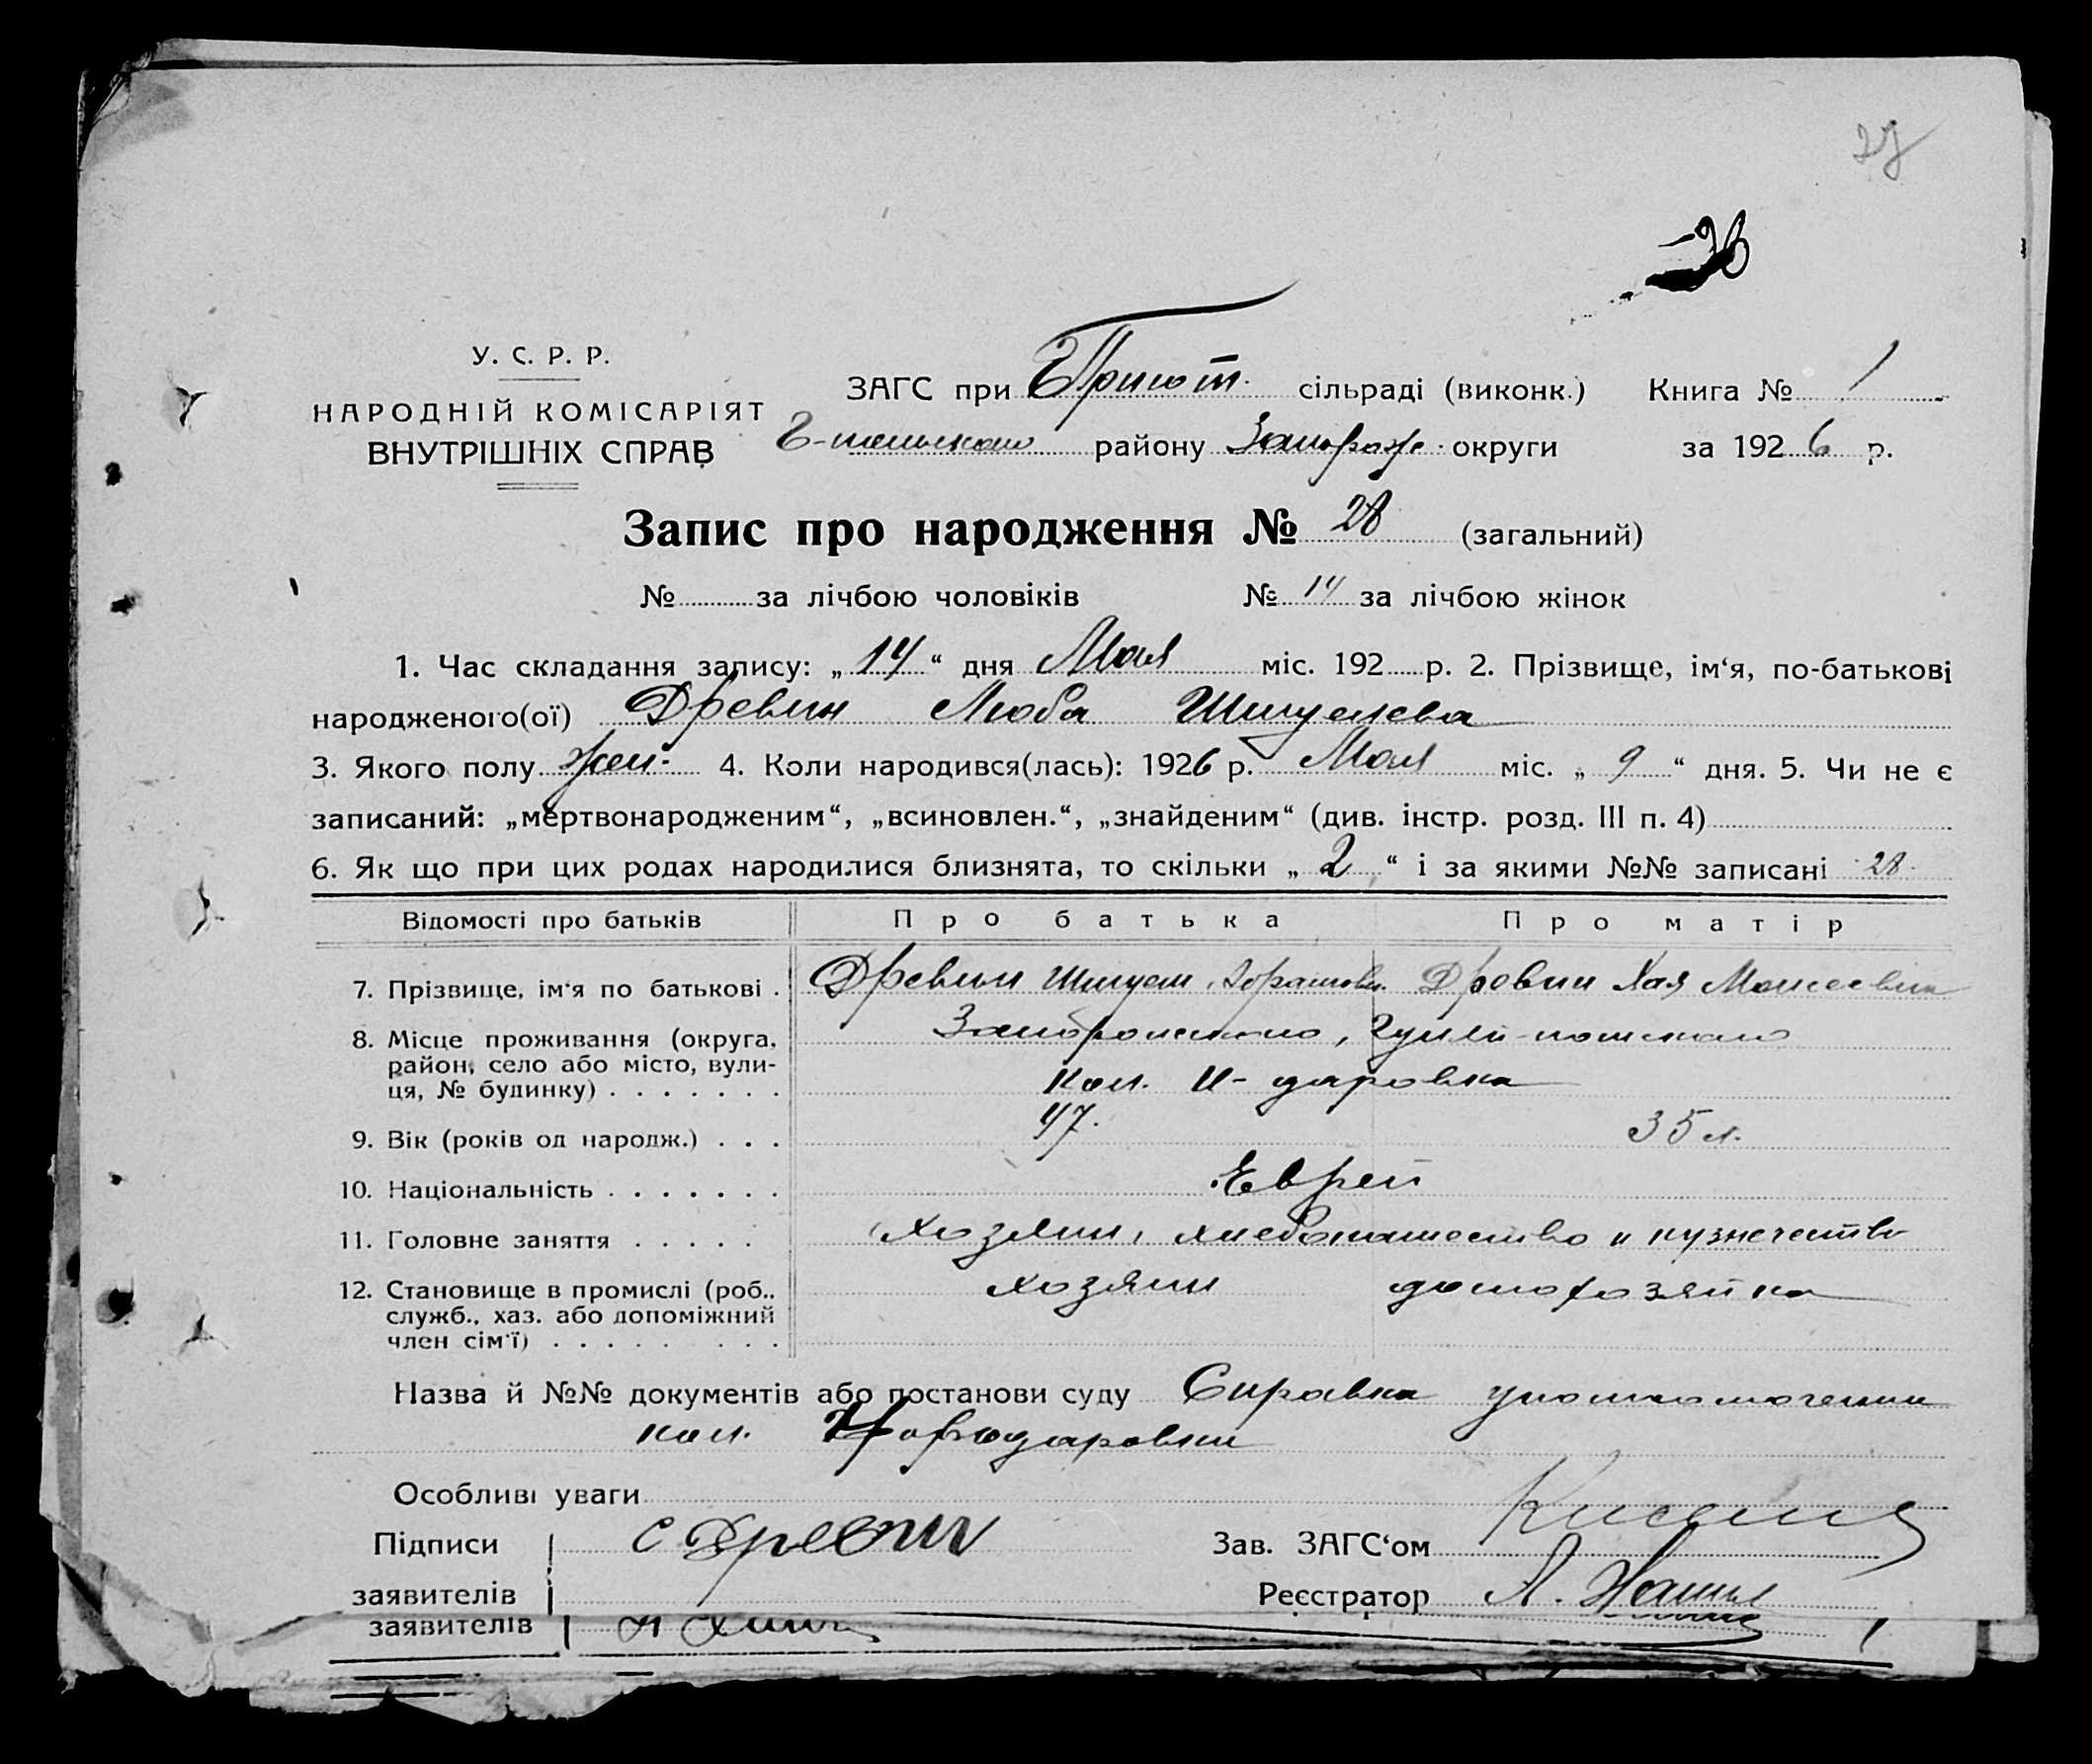 27
28
У. С. Р. Р.
НАРОДНІЙ КОМІСАРІЯТ
ВНУТРІШНІХ СПРАВ
ЗАГС при Приют. сільраді (виконк.) Книга № 1
району Запорож. округи за 1926 р.
Запис про народження № 28 (загальний)
№ за лічбою чоловіків № 14 за лічбою жінок
1. Час складання запису: „ 14 “ дня Мая міс. 192 р. 2. Прізвище, ім‘я, по-батькові
народженого(ої) Древин Люба Шмулева
3. Якого полу жен. 4. Коли народився(лась): 1926 р. Мая міс. „ 9 “ дня. 5. Чи не є
записаний: „мертвонародженим“, „всиновлен.“, „знайденим“ (див. інстр. розд. III п. 4)
6. Як що при цих родах народилися близнята, то скільки „ 2 “ і за якими №№ записані 28.
Відомості про батьків Про батька Про матір
7. Прізвище, ім‘я по батькові . Древин Шмуел Абрамов. Древин Хая Моисеевна
8. Місце проживання (округа, район, село або місто, вули-ця, № будинку) . . . . . . .
Гуляй-польськаго
кол. Н-даровка
9. Вік (років од народж.) . . . 47. 35 л.
10. Національність . . . . . . . Еврей
11. Головне заняття . . . . . хозяин, хлебопашество и кузнечество
12. Становище в промислі (роб.. служб., хаз. або допоміжний член сім‘ї) . . . . . . . . .
хозяин домохозяйка
Назва й №№ документів або постанови суду Справка уполномоченн
кол. Новодаровки
Особливі уваги
Підписи С Древин Зав. ЗАГС‘ом
заявителів Реєстратор Л.
заявителів